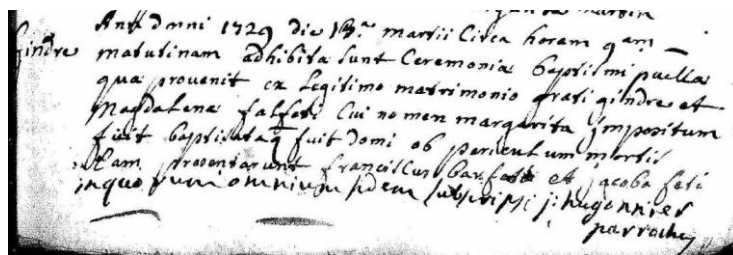 Anno dmni 1729 die 13a martii Circa horam 9am
findre matutinam adhibita sunt Ceremonia baptismi puella
qua provenit ex Legitimo matrimonio grati gindre et
Magdalena falfat Cui nomen margarita impositum
fuit baptisataq fuit domi ob periculum mortis
Eam presentarunt franciscus et jacoba
in quorum omnium fidem subscripsi j: hugonnier
parrochus